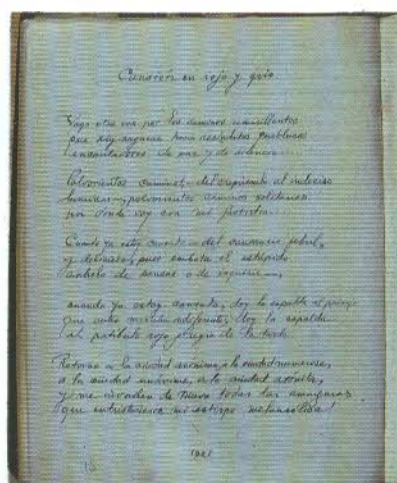 Canción en rojo y gris
Vago otra vez por los caminos amarillentos
que zig-zaguean hacia recónditos pueblecos
encantadores de paz y de silencio.
Polvorientos caminos—del crepúsculo al indeciso
luminar—, polvorientos caminos solitarios
por donde voy con mi
Cuando ya estoy cansado—del cansancio febril,
y delicioso, pues embota el estúpido
anhelo de o de inquirir—,
cuando ya estoy cansado, doy la espalda al paisaje
que antes miraba indiferente, doy la espalda
al patíbulo rojo y negro de la tarde.
Retorno a la ciudad anónima, a la ciudad numerosa,
a la ciudad anónima, a la ciudad
y me invaden de nuevo todas las amarguras
que entristecieron mi estirpe melancólica!
1921